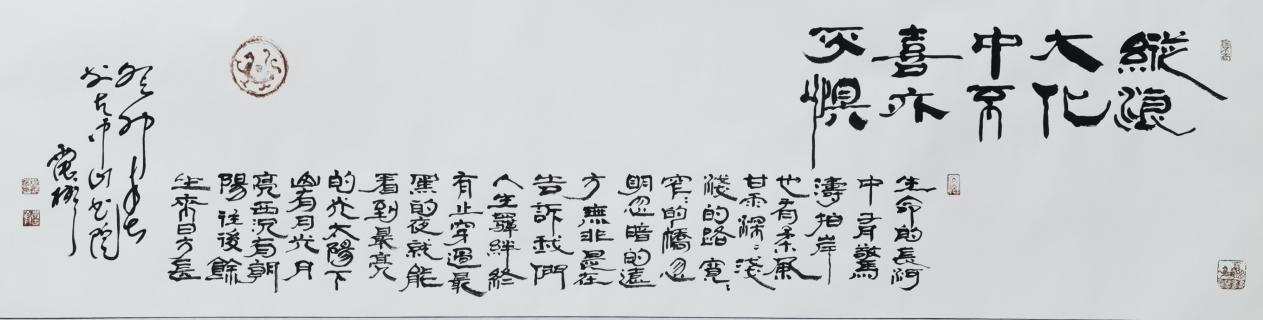 縱浪
大化
中不
喜亦
不懼
生命的長河
中有驚
濤拍岸
也有柔風
甘雨深々淺
淺的路寬々
窄々的橋忽
明忽暗的遠
方無非是在
告訴我們
人生羈絆終
有止穿過最
黑的夜就能
看到最亮
的光太陽下
山有月光月
亮西沉有朝
陽往後餘
生來日方長
癸卯春
於古中山書院